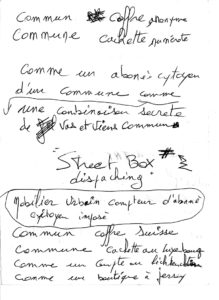 Commun coffre anonyme
Commune cachette numéroté
Comme un abonné citoyen
d'un commune comme
une combinaison secrète
de Vas et Viens Commun
"Street Box
dispaching"
Mobilier Urbain compteur d'abonné
citoyen imposé
Commun coffre suisse
Commune cachette au luxembourg
Comme un compte au lichtenchtein
Comme une boutique à Jersey